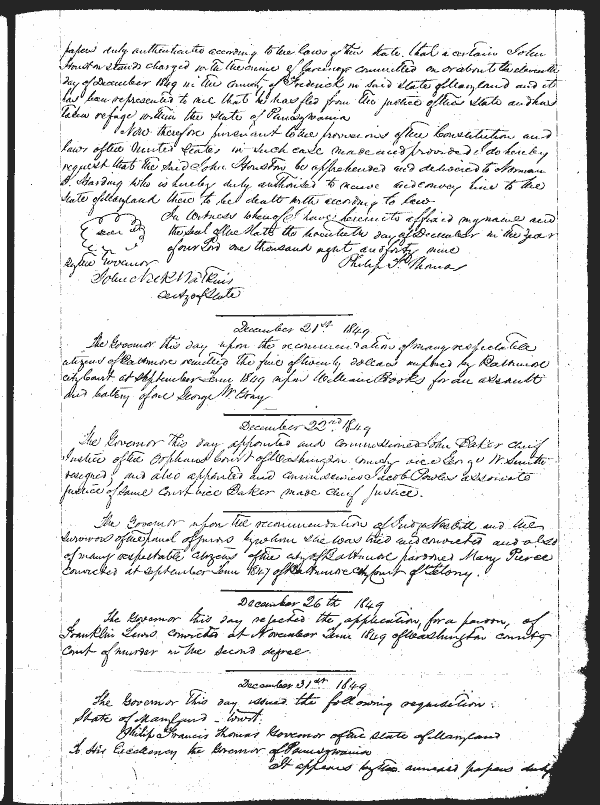 papers duly authenticated according to the laws of this State, that a certain John
Houston stands charged with the crime of larceny committed on or about the eleventh
day of December 1849 in the county of Frederick in said State of Maryland and it
has been represented to me that he has fled from the justice of this State and has
taken refuge within the State of Pennsylvania
Now therefore pursuant to the provisions of the Constitution and
laws of the United States in such case made and provided I do hereby
request that the said John Houston be apprehended and delivered to Norman
B. Harding who is hereby duly authorised to receive and convey him to the
State of Maryland there to be dealt with according to law
In testimony whereof I have hereunto affixed my name and
seal
the seal of the State the twentieth day of December in the year
of our Lord one thousand eight and forty nine
By the Governor
Philip F. Thomas
John Nick Watkins
Secty of State
December 21st 1849
The Governor this day upon the recommendation of many respectable
citizens of Baltimore remitted the fine of twenty dollars imposed by Baltimore
city Court at September Term 1849 upon William Brooks for an assault
and battery of one George W. Gray
December 22nd 1849
The Governor this day appointed and commissioned John Baker chief
Justice of the Orphans Court of Washington county vice George W. Smith
resigned, and also appointed and commissioned Jacob Powles associate
justice of same Court vice Baker made chief Justice.
The Governor upon the recommendation of Judge Nesbitt and the
survivors of the panel of jurors by whom she was tried and convicted and also
of many respectable citizens of the city of Baltimore pardoned Mary Pierce
convicted at September Term 1847 of Baltimore city Court of Felony.
December 26th 1849
The Governor this day rejected the application for a pardon, of
Franklin Lewis convicted at November Term 1849 of Washington county
Court of murder in the second degree.
December 31st 1849
The Governor this day issued the following requisition:
State of Maryland – towit:
Philip Francis Thomas Governor of the State of Maryland
To His Excellency the Governor of Pennsylvania
It appears by the annexed papers duly